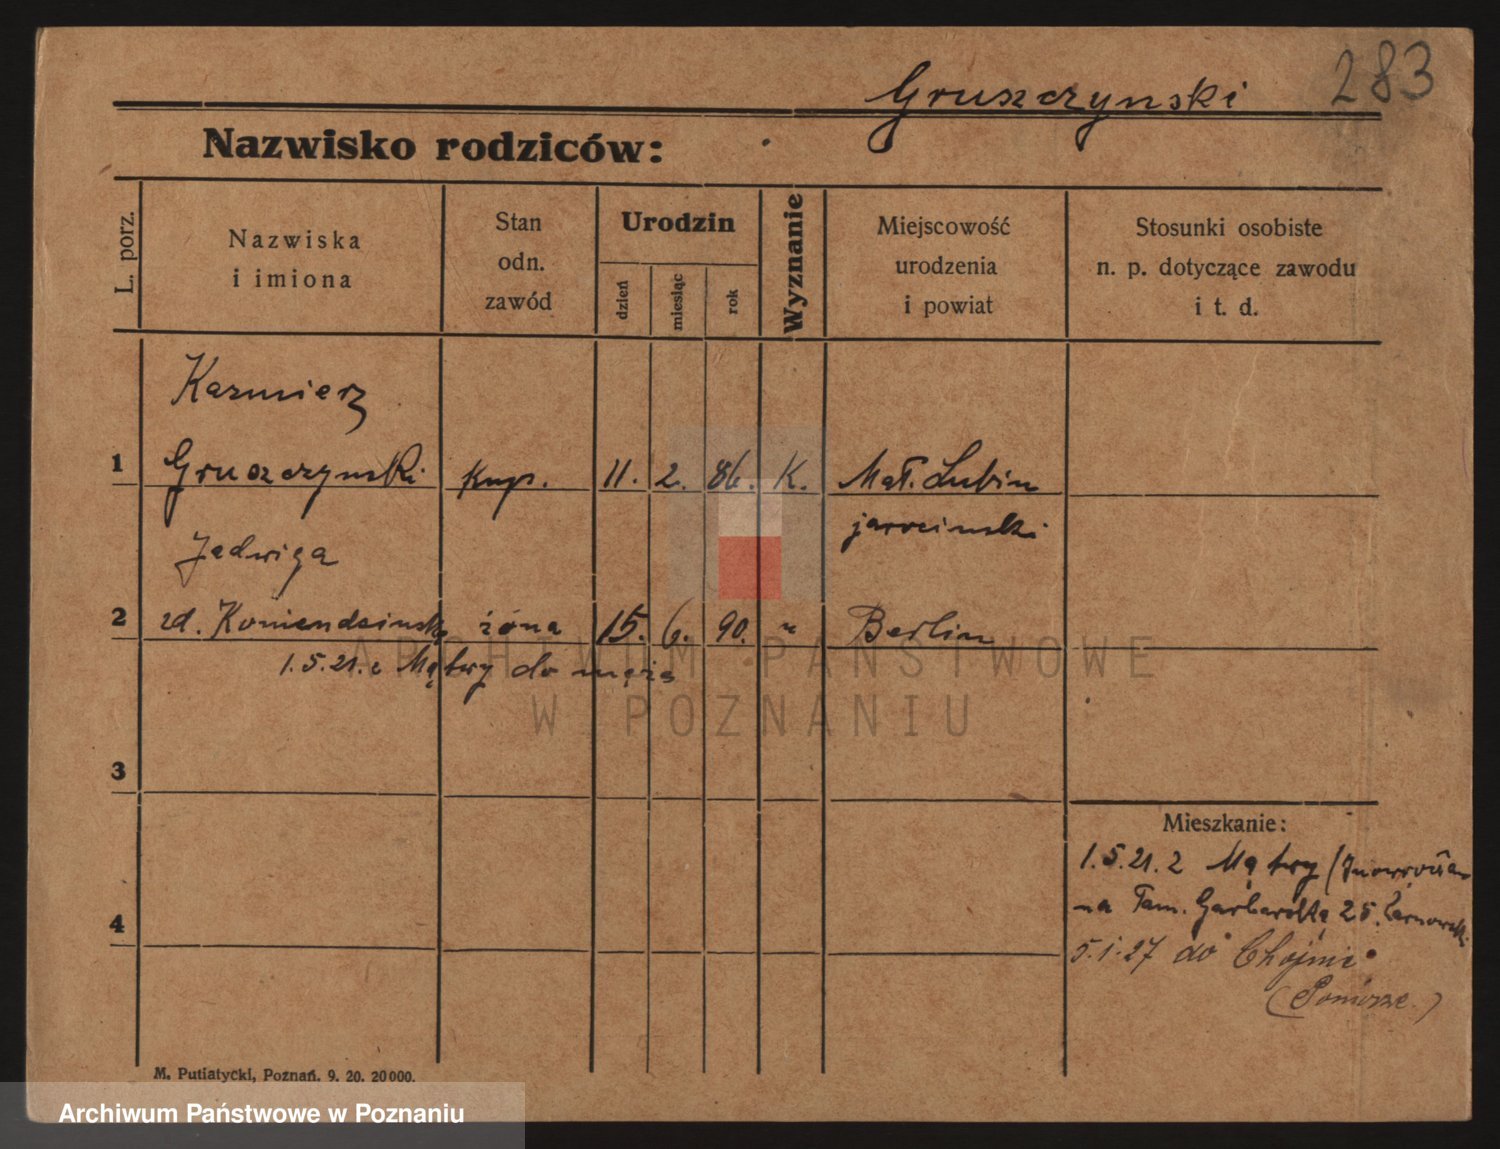 283
Gruszczynski
Nazwisko rodziców:
L. porz.
Nazwiska
i imiona
Stan
odn.
zawód
Urodzin
dzień
miesiąc
rok
Wyznanie
Miejscowość
urodzenia
i powiat
Stosunki osobiste
n. p. dotyczące zawodu
i t. d.
Kazmierz
1 Gruszczynski kup. 11. 2. 86. K. Mał. Lubin
jarocinski
Jadwiga
2 zd. żona 15. 6. 90. " Berlin
1.5.21. z Mątwy do męża
ARCHIWUM PAŃSTWOWE
W POZNANIU
3
4
Mieszkanie:
1.5.21. z Mątwy
na Tam. Garbarską 25.
5.1.27 do
M. Putiatycki, Poznań. 9. 20. 20000.
Archiwum Państwowe w Poznaniu